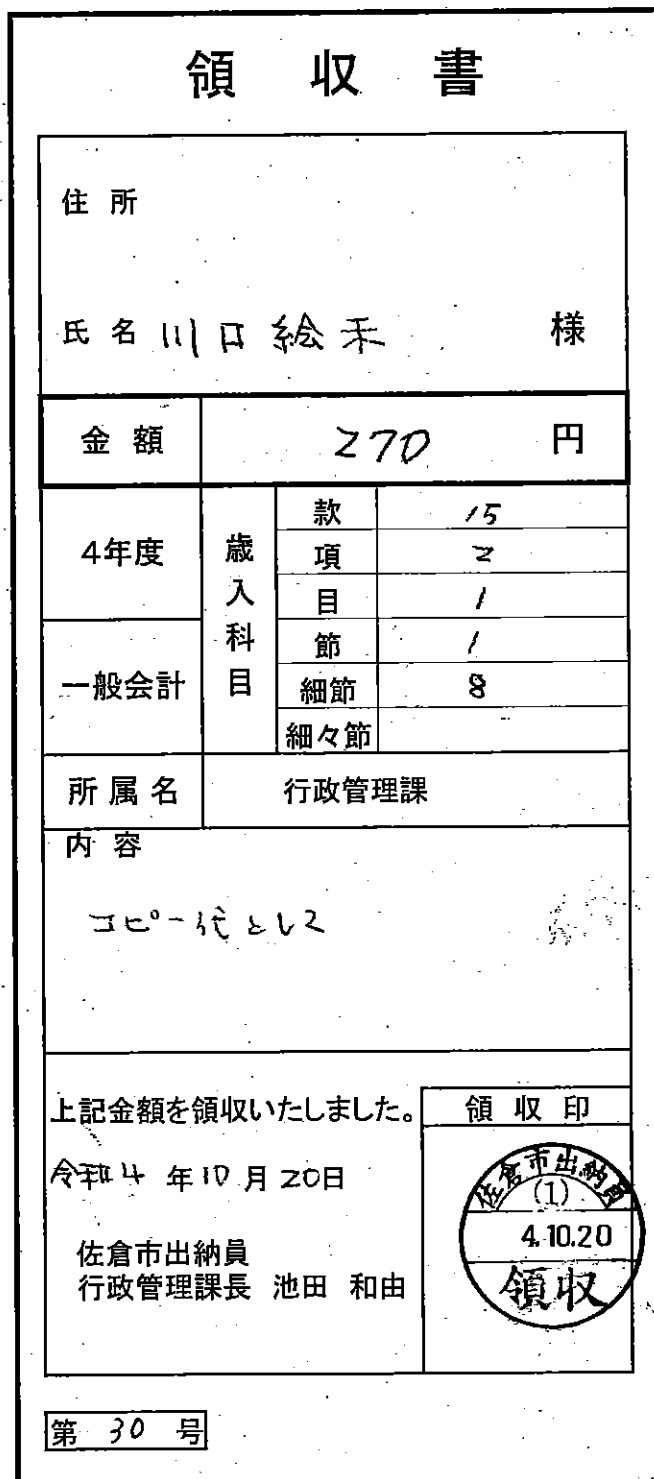 領収書
住所
氏名 川口絵禾 様
金額 270 円
4年度
一般会計
歳入科目
款 15
項 2
目 1
節 1
細節 8
細々節
所属名 行政管理課
内容
コピー代として
上記金額を領収いたしました。
令和4年10月20日
佐倉市出納員
行政管理課長 池田 和由
領収印
佐倉市出納員
(1)
4.10.20
領収
第 30 号